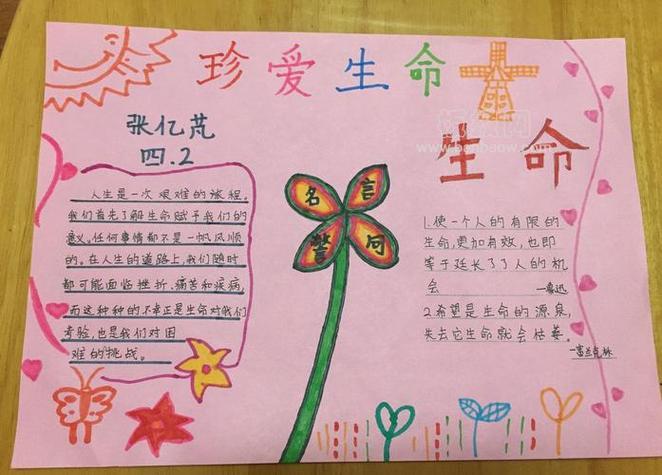 珍爱生命
张亿芃
四.2
生命
人生是一次艰难的旅程,
我们首先了解生命赋予我们的
意义。任何事情都不是一帆风顺
的。在人生的道路上,我们随时
都可能面临挫折、痛苦和疾病,
而这种种的不幸正是生命对我们
考验,也是我们对困
难的挑战。
名言
警句
1.使一个人的有限的
生命,更加有效,也即
等于延长了了人的机
会 —鲁迅
2.希望是生命的源泉,
失去它生命就会枯萎。
—富兰克林
www.banbaow.com